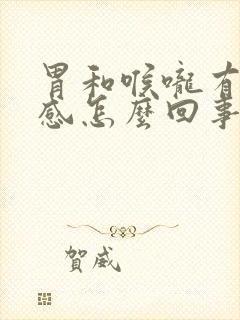 胃和喉嚨有
感怎麼回事
賀威